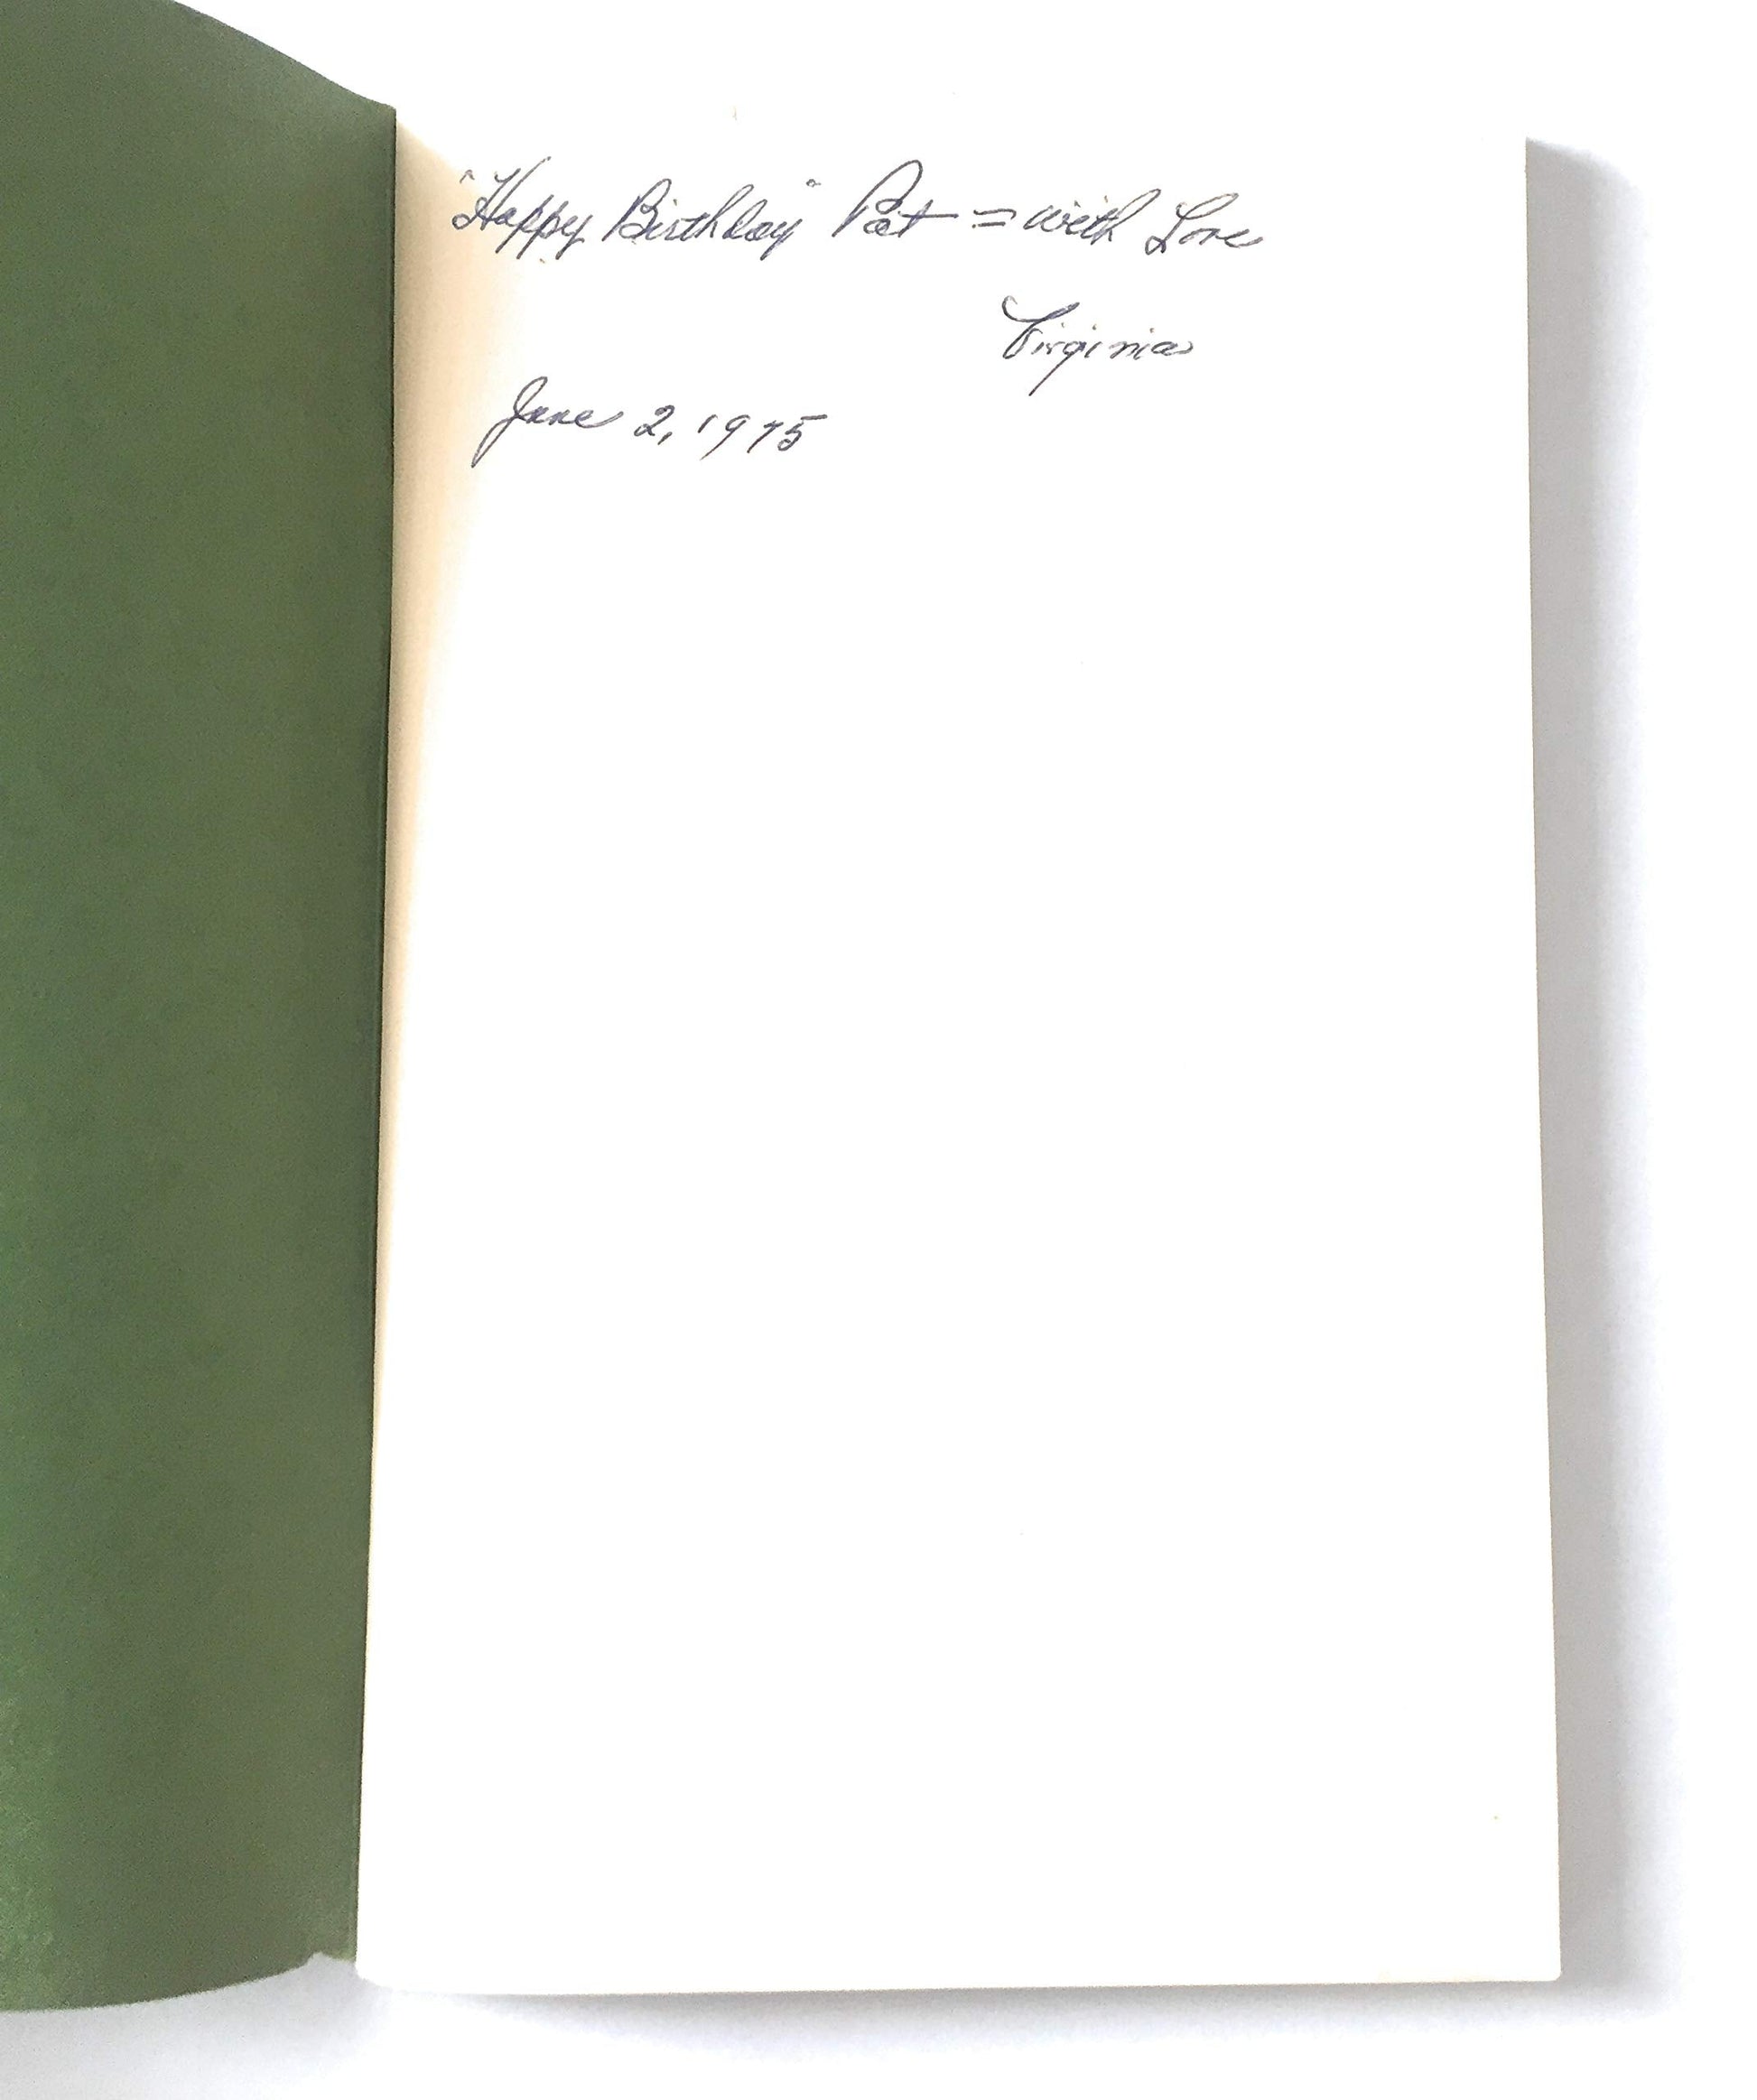 "Happy Birthday" Pat = with Love
Virginia
June 2, 1975